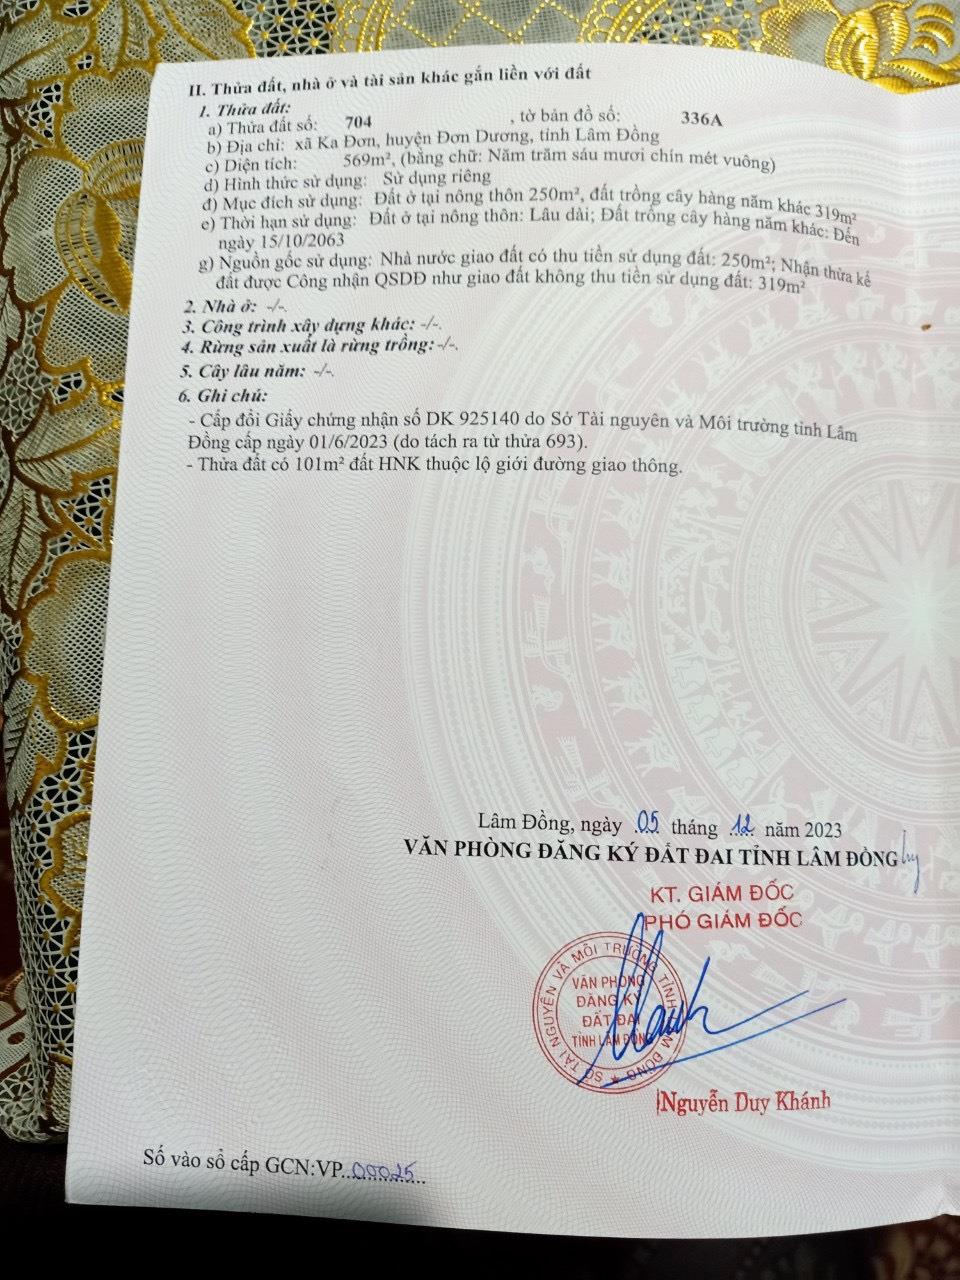 II. Thửa đất, nhà ở và tài sản khác gắn liền với đất
1. Thửa đất:
a) Thửa đất số: 704 , tờ bản đồ số: 336A
b) Địa chỉ: xã Ka Đơn, huyện Đơn Dương, tỉnh Lâm Đồng
c) Diện tích: 569m², (bằng chữ: Năm trăm sáu mươi chín mét vuông)
d) Hình thức sử dụng: Sử dụng riêng
đ) Mục đích sử dụng: Đất ở tại nông thôn 250m², đất trồng cây hàng năm khác 319m²
e) Thời hạn sử dụng: Đất ở tại nông thôn: Lâu dài; Đất trồng cây hàng năm khác: Đến
ngày 15/10/2063
g) Nguồn gốc sử dụng: Nhà nước giao đất có thu tiền sử dụng đất: 250m²; Nhận thừa kế
đất được Công nhận QSDĐ như giao đất không thu tiền sử dụng đất: 319m²
2. Nhà ở: -/-.
3. Công trình xây dựng khác: -/-.
4. Rừng sản xuất là rừng trồng: -/-.
5. Cây lâu năm: -/-.
6. Ghi chú:
- Cấp đổi Giấy chứng nhận số DK 925140 do Sở Tài nguyên và Môi trường tỉnh Lâm
Đồng cấp ngày 01/6/2023 (do tách ra từ thửa 693).
- Thửa đất có 101m² đất HNK thuộc lộ giới đường giao thông.
Lâm Đồng, ngày 05 tháng 12 năm 2023
VĂN PHÒNG ĐĂNG KÝ ĐẤT ĐAI TỈNH LÂM ĐỒNG
KT. GIÁM ĐỐC
PHÓ GIÁM ĐỐC
SỞ TÀI NGUYÊN VÀ MÔI TRƯỜNG TỈNH LÂM ĐỒNG
VĂN PHÒNG
ĐĂNG KÝ
ĐẤT ĐAI
TỈNH LÂM ĐỒNG
Nguyễn Duy Khánh
Số vào sổ cấp GCN:VP...00025...